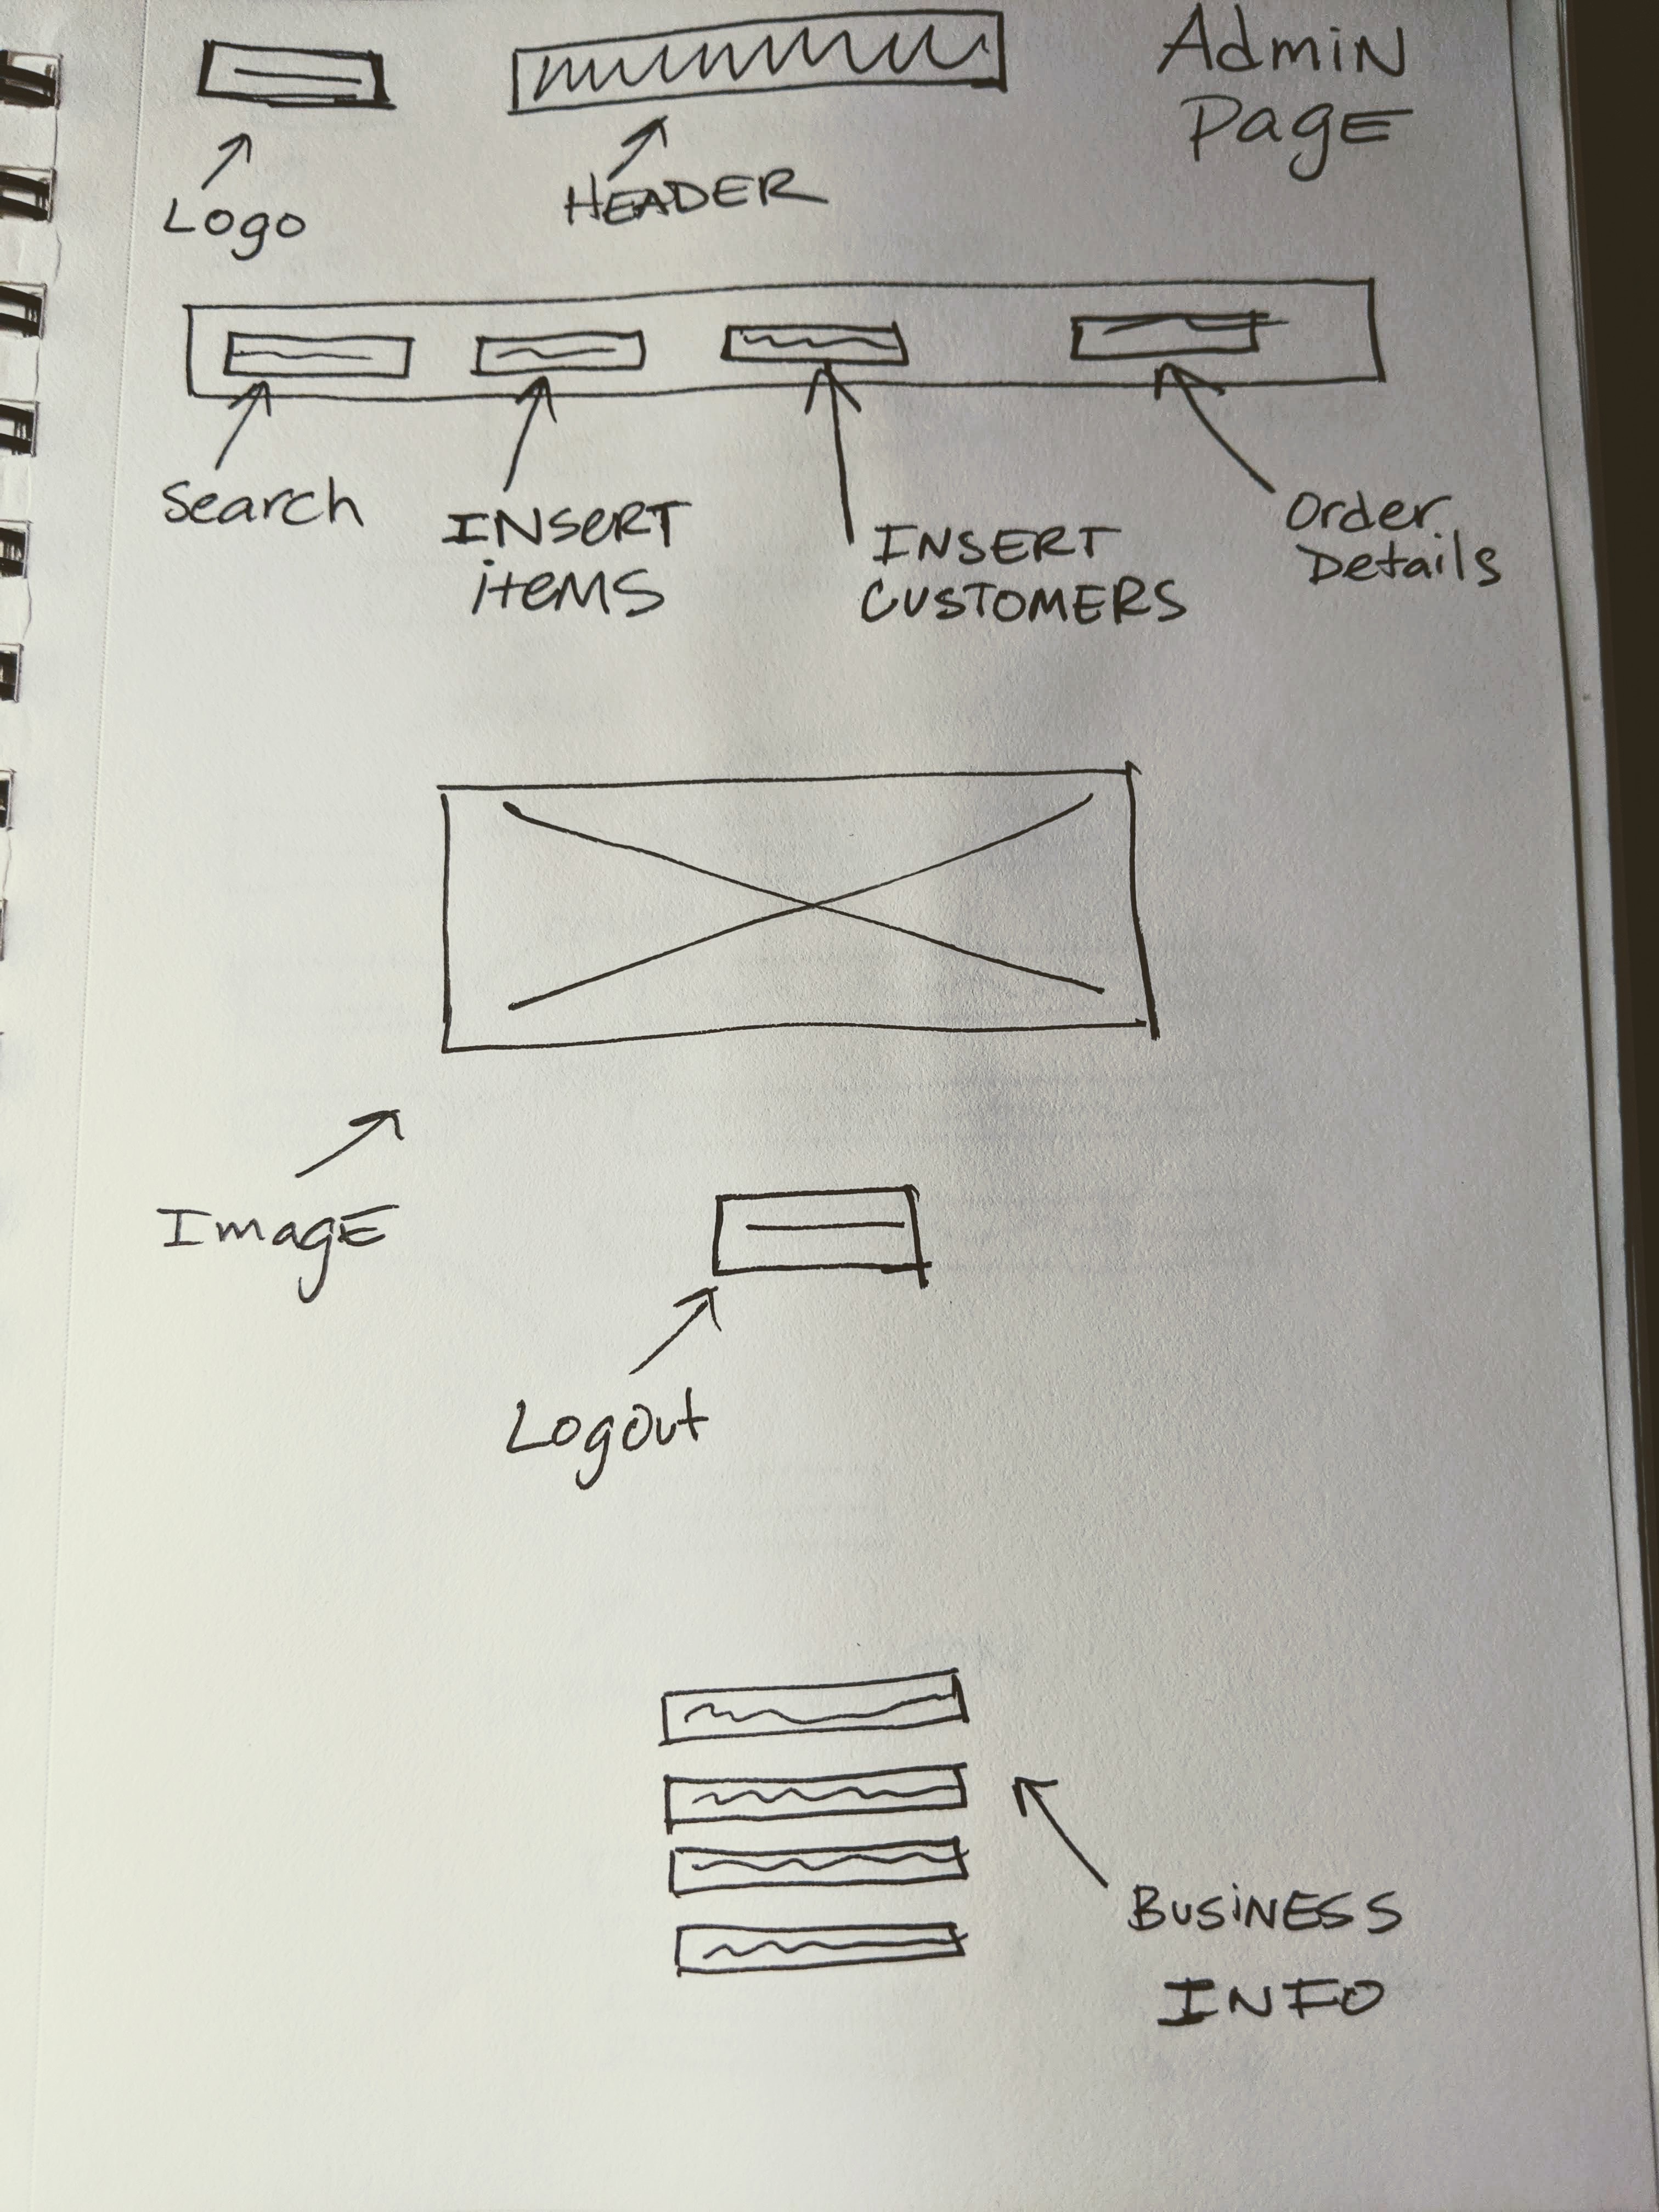 Admin
Page
Logo
HEADER
Search
INSERT
items
INSERT
CUSTOMERS
Order
Details
Image
Logout
BUSINESS
INFO